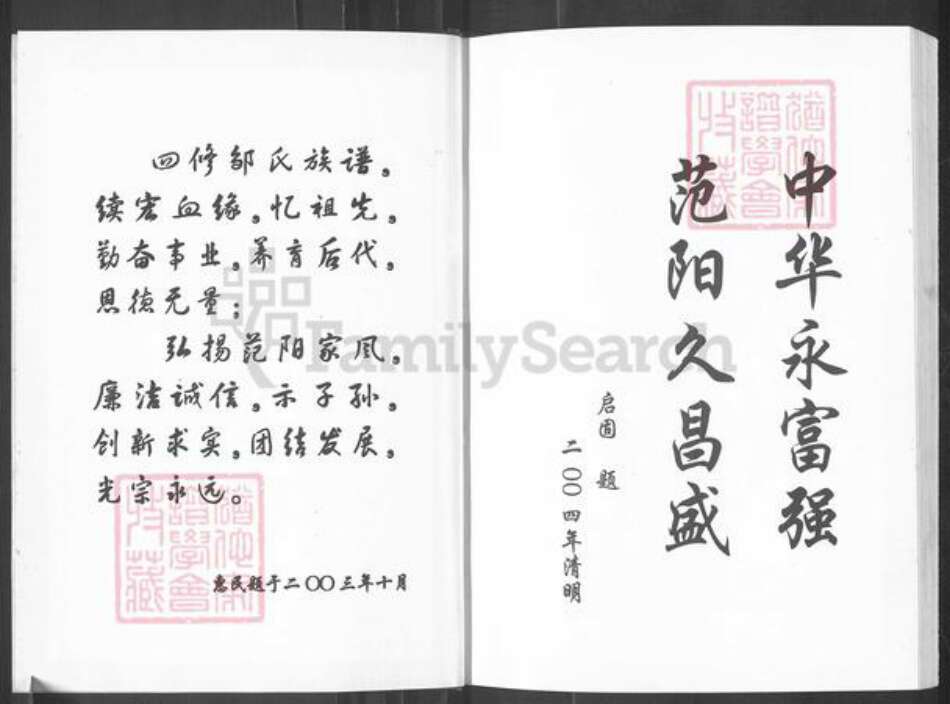 四修邹氏族谱。
续宏血缘。忆祖先。
勤奋事业。养育后代。
恩德无量；
弘扬范阳家风。
廉洁诚信。示子孙。
创新求实。团结发展。
光宗永远。
惠民题于二〇〇三年十月
中华永富强
范阳久昌盛
启固 题
二〇〇四年清明
猶他家譜學會收藏
猶他家譜學會收藏
FamilySearch